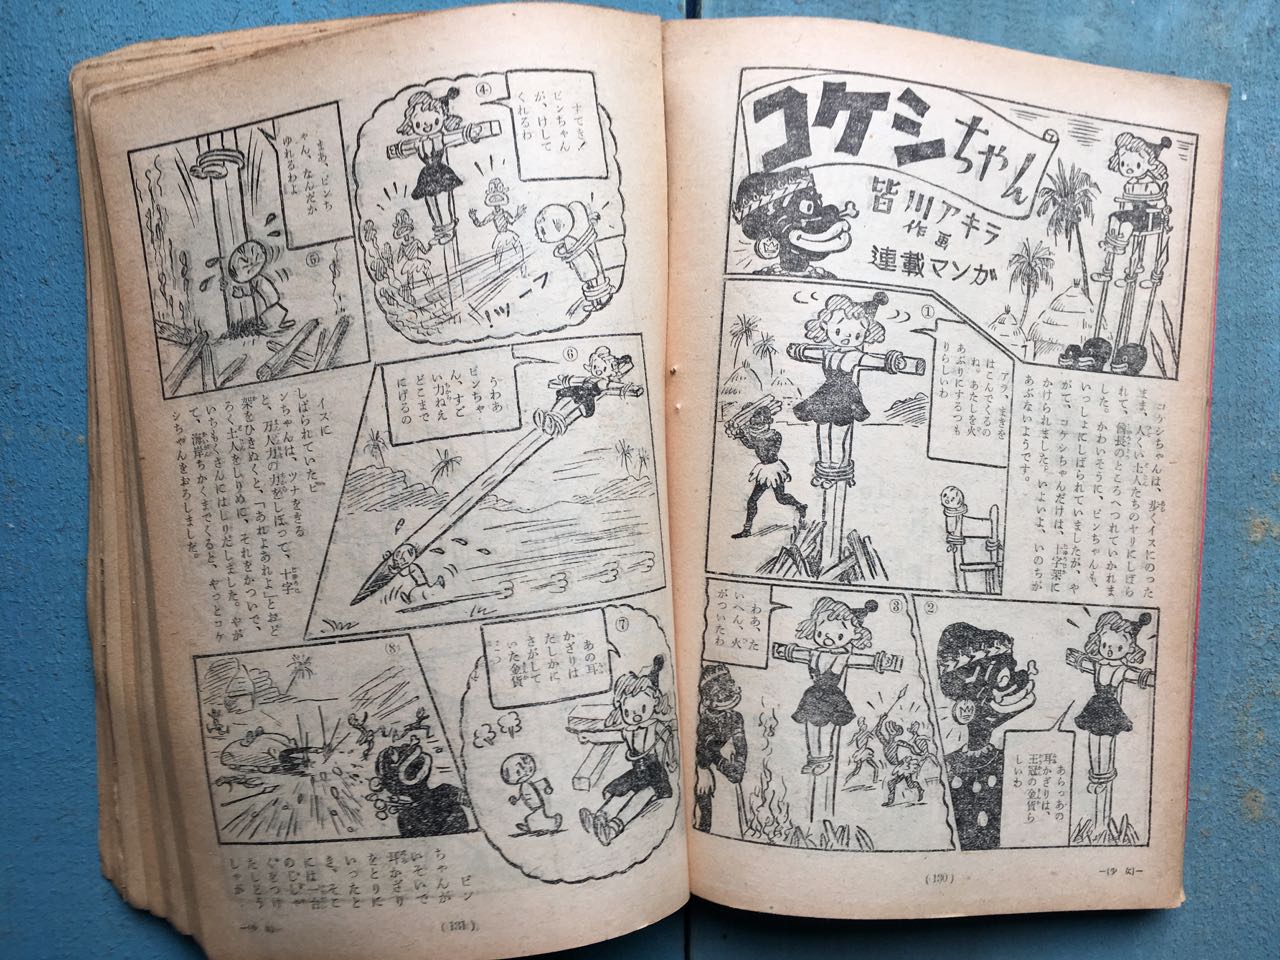 コケシちゃん
皆川アキラ
作画
連載マンガ
コケシちゃんは、歩くイスにのった
まま、人くい土人たちのヤリにしばら
れて、酋長のところへつれていかれま
した。かわいそうに、ピンちゃんも、
いっしょにしばられていましたが、や
がて、コケシちゃんだけは、十字架に
かけられました。いよいよ、いのちが
あぶないようです。
①
アラ、まきを
はこんでくるの
ね。あたしを火
あぶりにするつも
りらしいわ
②
あらっあの
耳かざりは、
王冠の金貨ら
しいわ
③
わあ、た
いへん、火
がついたわ
(130)
―(少女)―
④
すてき!
ピンちゃん
が、けして
くれるわ
フーッ!
⑤
まあ、ピンち
ゃん、なんだか
ゆれるわよ
⑥
うわあ
ピンちゃ
ん、すご
い力ねえ
どこまで
にげるの
イスに
しばられていたピ
ンちゃんは、ツナをきる
と、万人力の力をしぼって、十字
架をひきぬくと、「あれよあれよ」とおど
ろく土人をしりめに、それをかついで、
いちもくさんにはしりだしました。やが
て、海岸ちかくまでくると、やっとコケ
シちゃんをおろしました。
⑦
あの耳
かざりは
たしかに
さがして
いた金貨
よ
⑧
ピン
ちゃんが
いそいで
耳かざり
をとりに
いったと
き、そこ
には一台
のじしゃ
(131)
―(少女)―